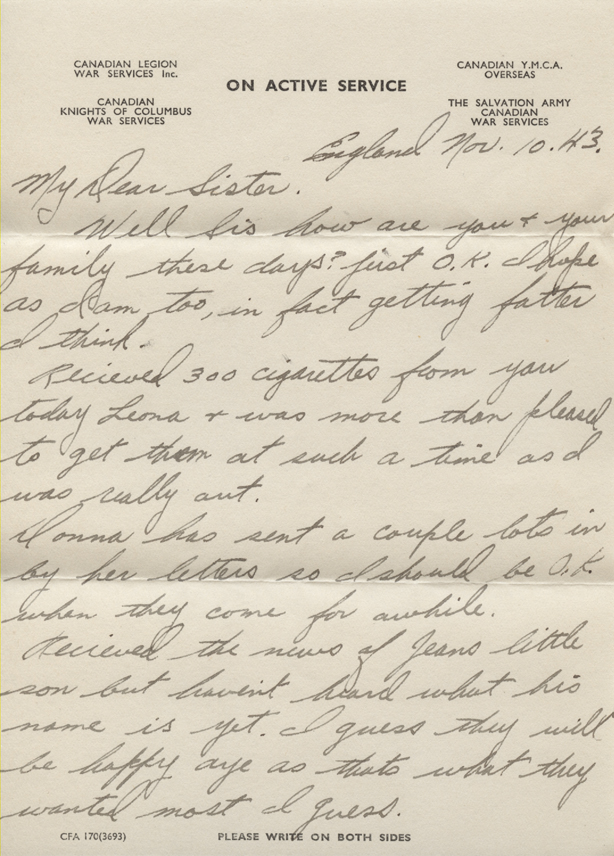 CANADIAN LEGION
WAR SERVICES Inc.
CANADIAN
KNIGHTS OF COLUMBUS
WAR SERVICES
ON ACTIVE SERVICE
CANADIAN Y.M.C.A.
OVERSEAS
THE SALVATION ARMY
CANADIAN
WAR SERVICES
England Nov. 10. 43.
My Dear Sister.
Well Sis how are you & your
family these days? first O.K. I hope
as I am too, in fact getting fatter
I think.
Recieved 300 cigarettes from you
today Leona & was more than pleased
to get them at such a time as I
was really out.
Donna has sent a couple lots in
by her letters so I should be O.K.
when they come for awhile.
Recieved the news of Jeans little
son but havent heard what his
name is yet. I guess they will
be happy aye as thats what they
wanted most I guess.
CFA 170(3693)
PLEASE WRITE ON BOTH SIDES